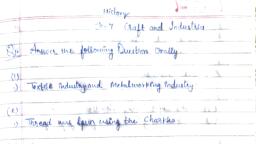 History
3.4 Craft and Industries
Answer the following Question Orally
(1)
Textile industry and Metalworking Industry
(2)
Thread was spun using the Charkha